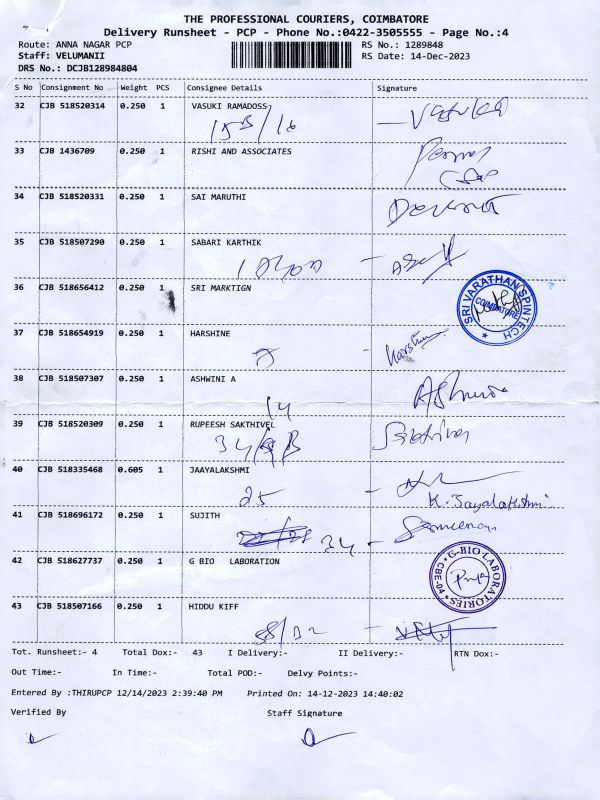 THE PROFESSIONAL COURIERS, COIMBATORE
Delivery Runsheet - PCP - Phone No.:0422-3505555 - Page No.:4
Route: ANNA NAGAR PCP RS No.: 1289848
Staff: VELUMANII RS Date: 14-Dec-2023
DRS No.: DCJB128984804
S No Consignment No Weight PCS Consignee Details Signature
32 CJB 518520314 0.250 1 VASUKI RAMADOSS
33 CJB 1436709 0.250 1 RISHI AND ASSOCIATES
34 CJB 518520331 0.250 1 SAI MARUTHI
35 CJB 518507290 0.250 1 SABARI KARTHIK
36 CJB 518656412 0.250 1 SRI MARKTIGN
SRI VARATHAN SPINTECH
COIMBATORE
37 CJB 518654919 0.250 1 HARSHINE
38 CJB 518507307 0.250 1 ASHWINI A
14
39 CJB 518520309 0.250 1 RUPEESH SAKTHIVEL
40 CJB 518335468 0.605 1 JAAYALAKSHMI
25
K. Jayalakshmi
41 CJB 518696172 0.250 1 SUJITH
34
42 CJB 518627737 0.250 1 G BIO LABORATION
G-BIO LABORATORIES
CBE-04
43 CJB 518507166 0.250 1 HIDDU KIFF
Tot. Runsheet:- 4 Total Dox:- 43 I Delivery:- II Delivery:- RTN Dox:-
Out Time:- In Time:- Total POD:- Delvy Points:-
Entered By :THIRUPCP 12/14/2023 2:39:40 PM Printed On: 14-12-2023 14:40:02
Verified By Staff Signature